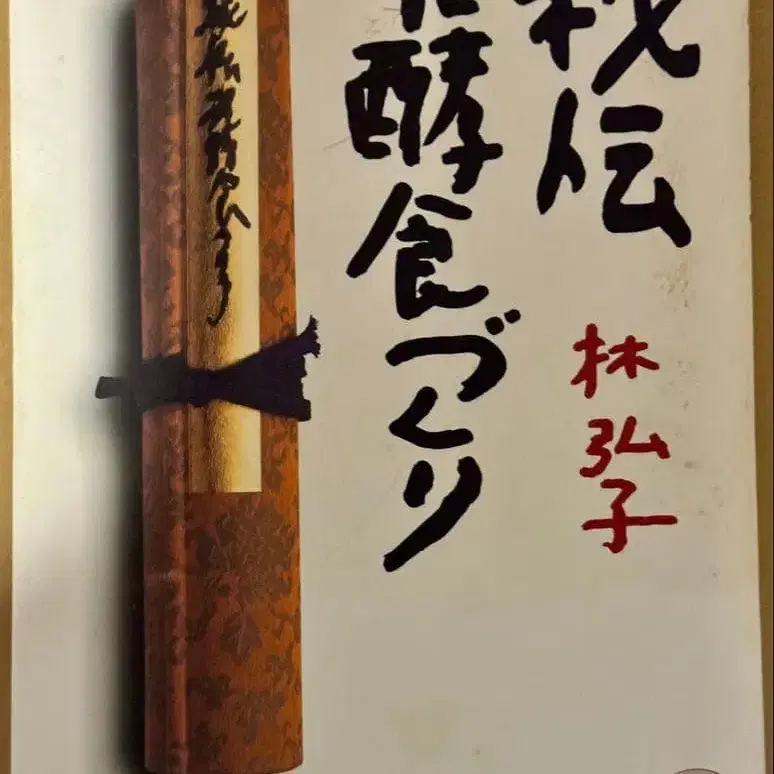 秘伝
発酵食づくり
林弘子